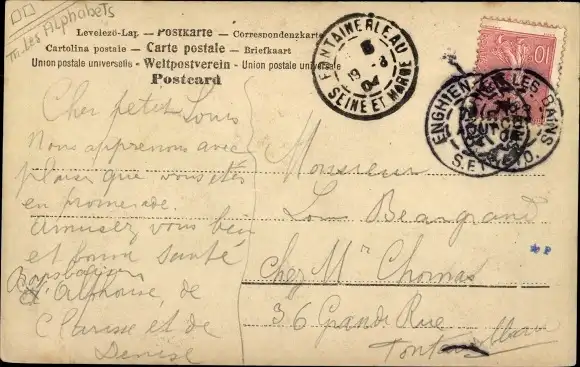 Th. Les Alphabets
Levelező-Lap. — Postkarte — Correspondenzkarte
Cartolina postale — Carte postale — Briefkaart
Union postale universelle - Weltpostverein - Union postale universale
Postcard
FONTAINEBLEAU
19 - 8
04
SEINE ET MARNE
10
ENGHIEN LES BAINS
S. ET O.
Cher petit Louis
Nous apprenons avec
plaisir que vous êtes
en promenade.
Amusez vous bien
et bonne santé
Bons baisers
d'Alphonse, de
Clarisse et de
Denise
Monsieur
Louis Beaugrand
Chez Mr Thomas
36 Grande Rue